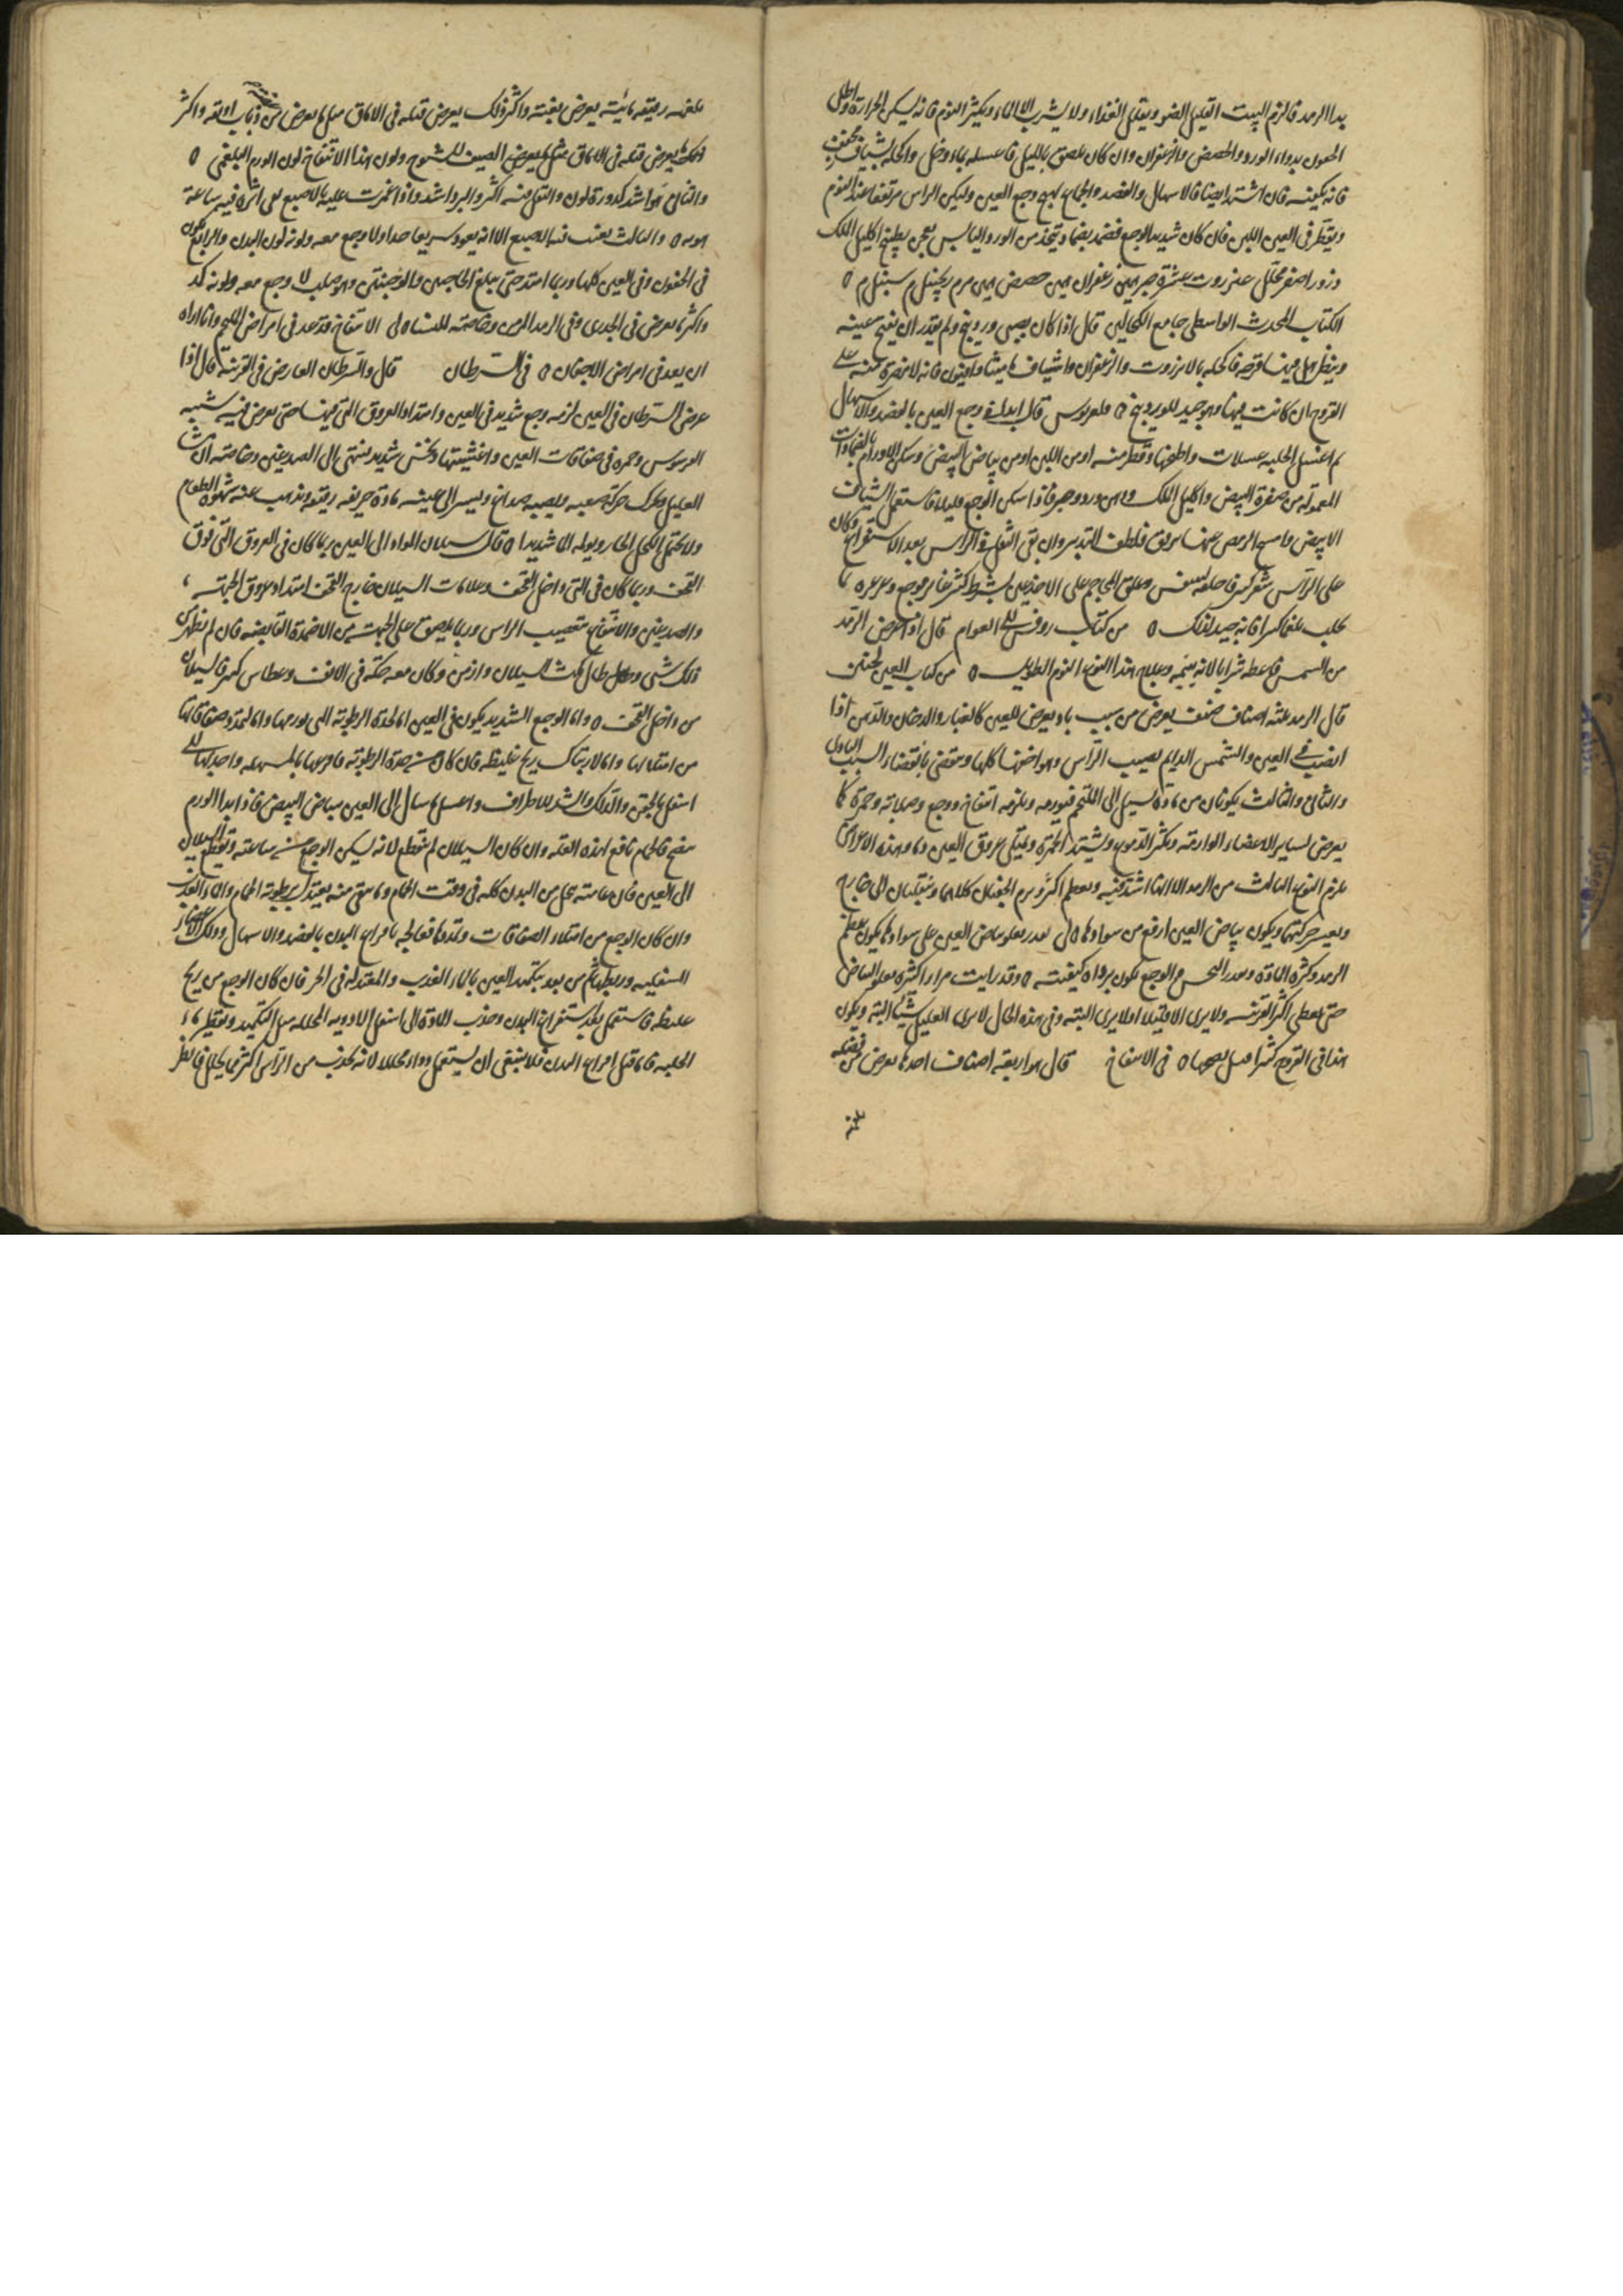 بدا الرمد فالزم البيت القليل الضو ويقلل الغذاء ولا يشرب الا الماء ويكثر النوم فانه يسكن الحرارة واطل
الجفون بدواء الورد والحضض والزعفران وان كان يلصق بالليل فاغسله بماء وخل واكحله بشياف مجفف
فانه يكفيه فان اشتد ايضا فالاسهال والفصد والجماع يهيج وجع العين وليكن الراس مرتفعا عند النوم
ويقطر في العين اللبن فان كان شديد الوجع فضمد بضماد يتخذ من الورد اليابس يعجن بطبيخ اكليل الملك
وزور اصفر محلل عنزروت عشرة صبر زعفران حضض مر
الكتاب المحدث الواسطي جامع الكحالين قال اذا كان بصبي وردينج ولم يقدر ان يفتح عينيه
وينظر هل فيها قرحه فاكحله بالانزروت والزعفران واشياف ماميثا وافيون فانه لا مضرة منه على
القروح ان كانت فيها وهو جيد للوردينج قال ابدا في وجع العين بالفصد والاسهال
ثم اغسل الحلبه غسلات واطبخها وقطر منه او من اللبن او من بياض البيض وسكن الاورام بالضمادات
المعموله من صفرة البيض واكليل الملك ودهن ورد فاذا سكن الوجع قليلا فاستعمل الشياف
الابيض وامسح الرمص عنها برفق فلطف التدبير وان بقي الثقل في الراس بعد الاستفراغ وكان
على الراس شعر كثير فاحلقه وعلق المحاجم على الاخدعين بشرط كثير غاير موجع وغرغره بما
يجلب بلغما كثيرا فانه جيد لذلك من كتاب روفس الى العوام قال اذا عرض الرمد
من الشمس فاعطه شرابا لانه ينيمه وعلاج هذا النوع النوم الطويل من كتاب العين لحنين
قال الرمد ثلثه اصناف صنف يعرض من سبب باد يعرض للعين كالغبار والدخان والدهن اذا
انصب في العين والشمس الدايم يصيب الراس وهو اخفها كلها وينقضي بانقضاء السبب البادي
والثاني والثالث يكونان من مادة تسيل الى الملتحم فيورمه ويلزمه انتفاخ ووجع وصلابه وحمرة كما
يعرض لساير الاعضاء الوارمه ويكثر الدموع ويشتد الحمرة ويمتلي عروق العين دما وهذه الاعراض
يلزم النوع الثالث من الرمد الا انها اشد فيه ويعظم اكثر ويرم الجفنان كلاهما وينقلبان الى خارج
ويعسر حركتهما ويكون بياض العين ارفع من سوادها لي بقدر يعلو بياض العين على سوادها يكون عظم
الرمد وكثرة المادة وبقدر النخس والوجع تكون رداة كيفيته وقد رايت مرارا كثيرة يعلو البياض
حتى يغطي اكثر القرنيه ولا يرى الا قليلا او لا يرى البته وفي هذه الحال لا يرى العليل شيئا البته ويكون
هذا في القروح كثيرا في الانتفاخ قال هو اربعة اصناف احدها يعرض من
بلغميه رقيقه مائية يعرض بغتة واكثر ذلك يعرض قبله في الاماق مثل ما يعرض من ذباب او بقه واكثر
ذلك ما يعرض قبله في الاماق مثل ما يعرض في الصيف للشيوخ ولون هذا الانتفاخ لون الورم البلغمي
والثاني هو اشد كدورة لون والثقل فيه اكثر والبرد اشد واذا غمزت عليه بالاصبع بقي اثره فيه ساعة
والثالث يغيب فيه الاصبع الا انه يعود سريعا جدا ولا وجع معه ولونه لون البدن والرابع يكون
في الجفون وفي العين كلها وربما امتد حتى يبلغ الحاجبين والوجنتين وهو صلب لا وجع معه ولونه كمد
واكثر ما يعرض في الجدري وفي الرمد المزمن وخاصة للنساء لي الانتفاخ قد عد في امراض الملتحم وانا اراه
ان يعد في امراض الاجفان في السرطان قال والسرطان العارض في القرنيه قال اذا
عرض السرطان في العين لزمه وجع شديد في العين وامتداد العروق التي فيها حتى يعرض فيه شبيه
وحمره في صفاقات العين واغشيتها ونخس شديد ينتهي الى الصدغين وخاصة ان
العليل وتحرك حركة صعبه ويصيبه صداع ويسير الى عينيه مادة حريفه رقيقه ويذهب عنه شهوة الطعام
ولا يحتمل الكحل الحار ويولمه الما شديدا قال سيلان المواد الى العين ربما كان في العروق التي فوق
القحف وربما كان في التي داخل القحف وعلامات السيلان خارج القحف امتداد عروق الجبهة
والصدغين والانتفاع بتعصيب الراس وربما يلصق على الجبهة من الاضمدة القابضه فان لم يظهر من
ذلك شي وطال مكث السيلان وازمن وكان معه حكة في الانف وعطاس كثير فالسيلان
من داخل القحف واما الوجع الشديد يكون في العين اما لحدة الرطوبة التي تورمها واما لتمدد صفاقاتها
من امتلائها واما لارتباك ريح غليظه فان كان من حدة الرطوبة فافرغها بالمسهله واجذبها الى
اسفل بالحقن والدلك والشد للاطراف واغسل ما سال الى العين ببياض البيض فاذا بدا الورم
ينضج فالحمام نافع لهذه العلة وان كان السيلان لم ينقطع لانه يسكن الوجع من ساعته ويقطع السيلان
الى العين فان عامته يتحلل من البدن كله في وقت الحمام وما بقي منه يعتدل برطوبة الحمام والماء العذب
وان كان الوجع من امتلاء الصفاقات وتمددها فعالجه بافراغ البدن بالفصد والاسهال ودلك الاعضاء
السفليه وربطها ثم من بعد بتكميد العين بالماء العذب والمعتدلة في الحر فان كان الوجع من ريح
غليظه فاستعمل بعد استفراغ البدن وجذب المادة الى اسفل الادويه المحلله مثل التكميد وتقطير ماء
الحلبه فاما قبل افراغ البدن فلا ينبغي ان يستعمل دواء محللا لانه يجذب من الراس اكثر مما يحلل فانظر